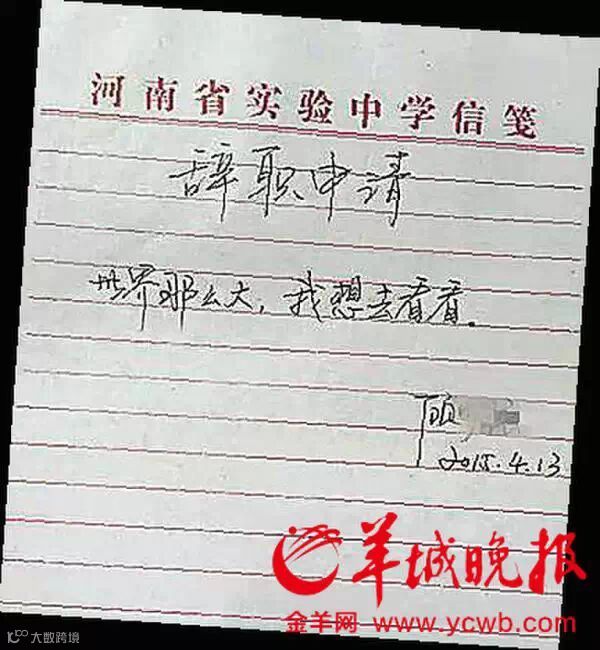 河南省实验中学信笺
辞职申请
世界那么大，我想去看看。
顾
2015.4.13
羊城晚报
金羊网 www.ycwb.com
大数跨境